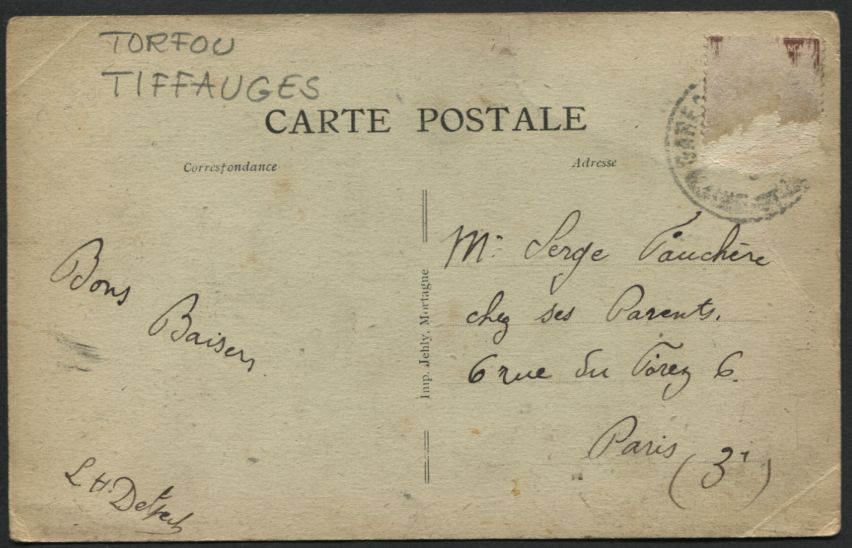 TORFOU
TIFFAUGES
CARTE POSTALE
Correspondance
Adresse
Bons
Baisers
L H.
Mr Serge Fauchère
chez ses Parents.
6 rue du Forez 6.
Paris (3e)
Imp. Jehly, Mortagne
GARE